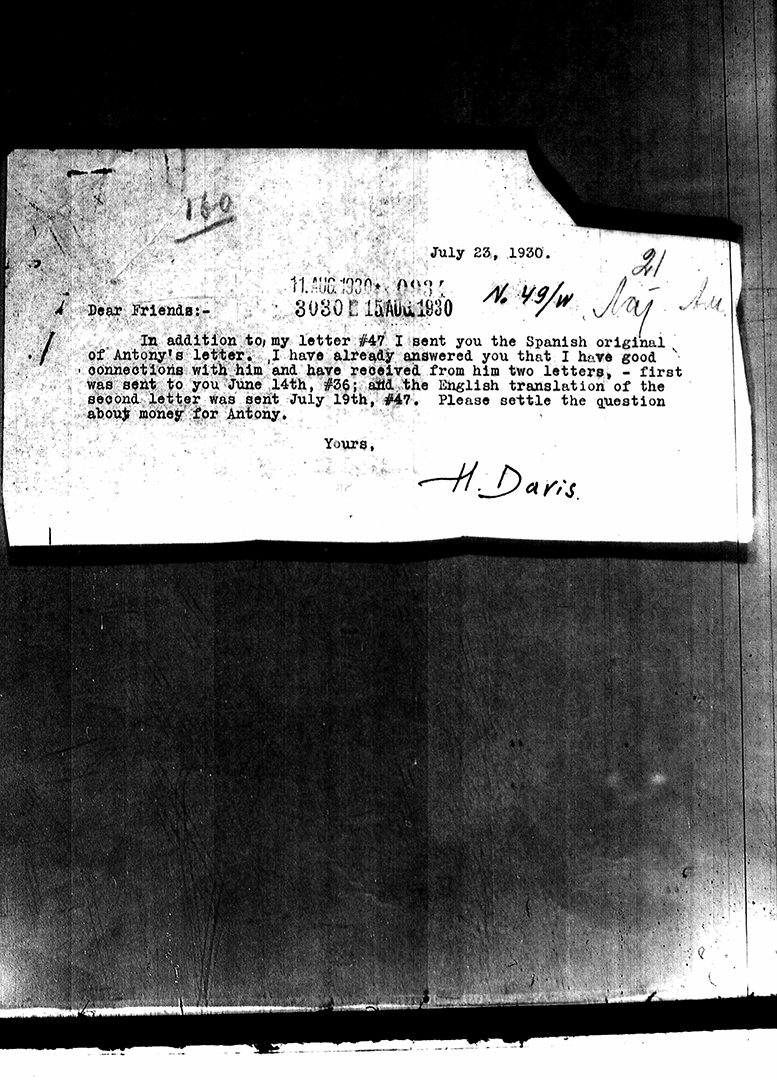 160
July 23, 1930.
21
11. AUG. 1930
3030 E 15 AUG. 1930
No 49/w
Dear Friends:-
In addition to my letter #47 I sent you the Spanish original
of Antony's letter. I have already answered you that I have good
connections with him and have received from him two letters, - first
was sent to you June 14th, #36; and the English translation of the
second letter was sent July 19th, #47. Please settle the question
about money for Antony.
Yours,
H. Davis.